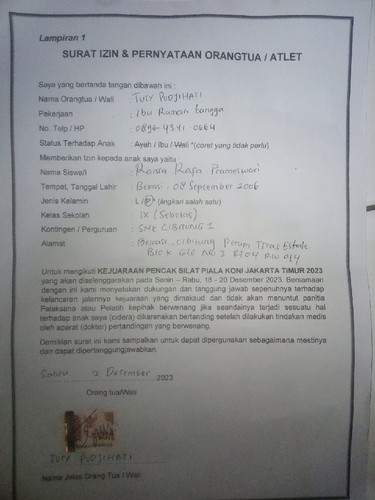 Lampiran 1
SURAT IZIN & PERNYATAAN ORANGTUA / ATLET
Saya yang bertanda tangan dibawah ini :
Nama Orangtua / Wali : TUTY PUDJIHATI
Pekerjaan : Ibu Rumah tangga
No. Telp / HP : 0896-4341-0664
Status Terhadap Anak : Ayah / Ibu / Wali *(coret yang tidak perlu)
Memberikan izin kepada anak saya yaitu :
Nama Siswa/i : Raisya Rafa Prameswari
Tempat, Tanggal Lahir : Bekasi, 08 September 2006
Jenis Kelamin : L / P * (lingkari salah satu)
Kelas Sekolah : IX (Sebelas)
Kontingen / Perguruan : SMK CIBITUNG 1
Alamat : Bekasi, Cibitung Perum Tirta Estate
Blok G10 No 1 RT04 RW 014
Untuk mengikuti KEJUARAAN PENCAK SILAT PIALA KONI JAKARTA TIMUR 2023
yang akan diselenggarakan pada Senin – Rabu, 18 - 20 Desember 2023. Bersamaan
dengan ini kami menyatakan dukungan dan tanggung jawab sepenuhnya terhadap
kelancaran jalannya kejuaraan yang dimaksud dan tidak akan menuntut panitia
Pelaksana atau Pelatih kepihak berwenang jika seandainya terjadi sesuatu hal
terhadap anak saya (cidera) dikarenakan bertanding setelah dilakukan tindakan medis
oleh aparat (dokter) pertandingan yang berwenang.
Demikian surat ini kami sampaikan untuk dapat dipergunakan sebagaimana mestinya
dan dapat dipertanggungjawabkan.
Sabtu 2 Desember 2023
Orang tua/Wali
TUTY PUDJIHATI
Nama Jelas Orang Tua / Wali